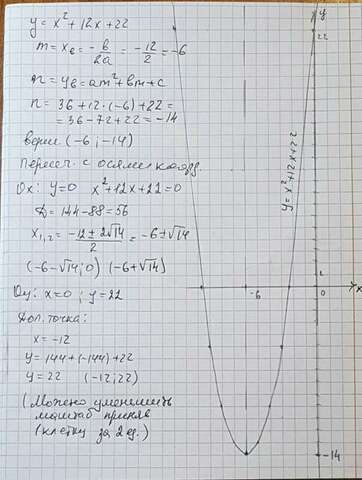 y = x² + 12x + 22
m = x₆ = -в/2a = -12/2 = -6
n = y₆ = am² + вm + c
n = 36 + 12·(-6) + 22 =
= 36 - 72 + 22 = -14
верш. (-6; -14)
пересеч. с осями коорд.
Ox: y=0 x² + 12x + 22 = 0
D = 144 - 88 = 56
x₁,₂ = (-12 ± 2√14)/2 = -6 ± √14
(-6-√14; 0) (-6+√14)
Oy: x=0; y=22
Доп. точка:
x = -12
y = 144 + (-144) + 22
y = 22 (-12; 22)
(Можно уменьшить
масштаб приняв
(клетку за 2 ед.)
y
22
y = x² + 12x + 22
2
x
-6
0
-14